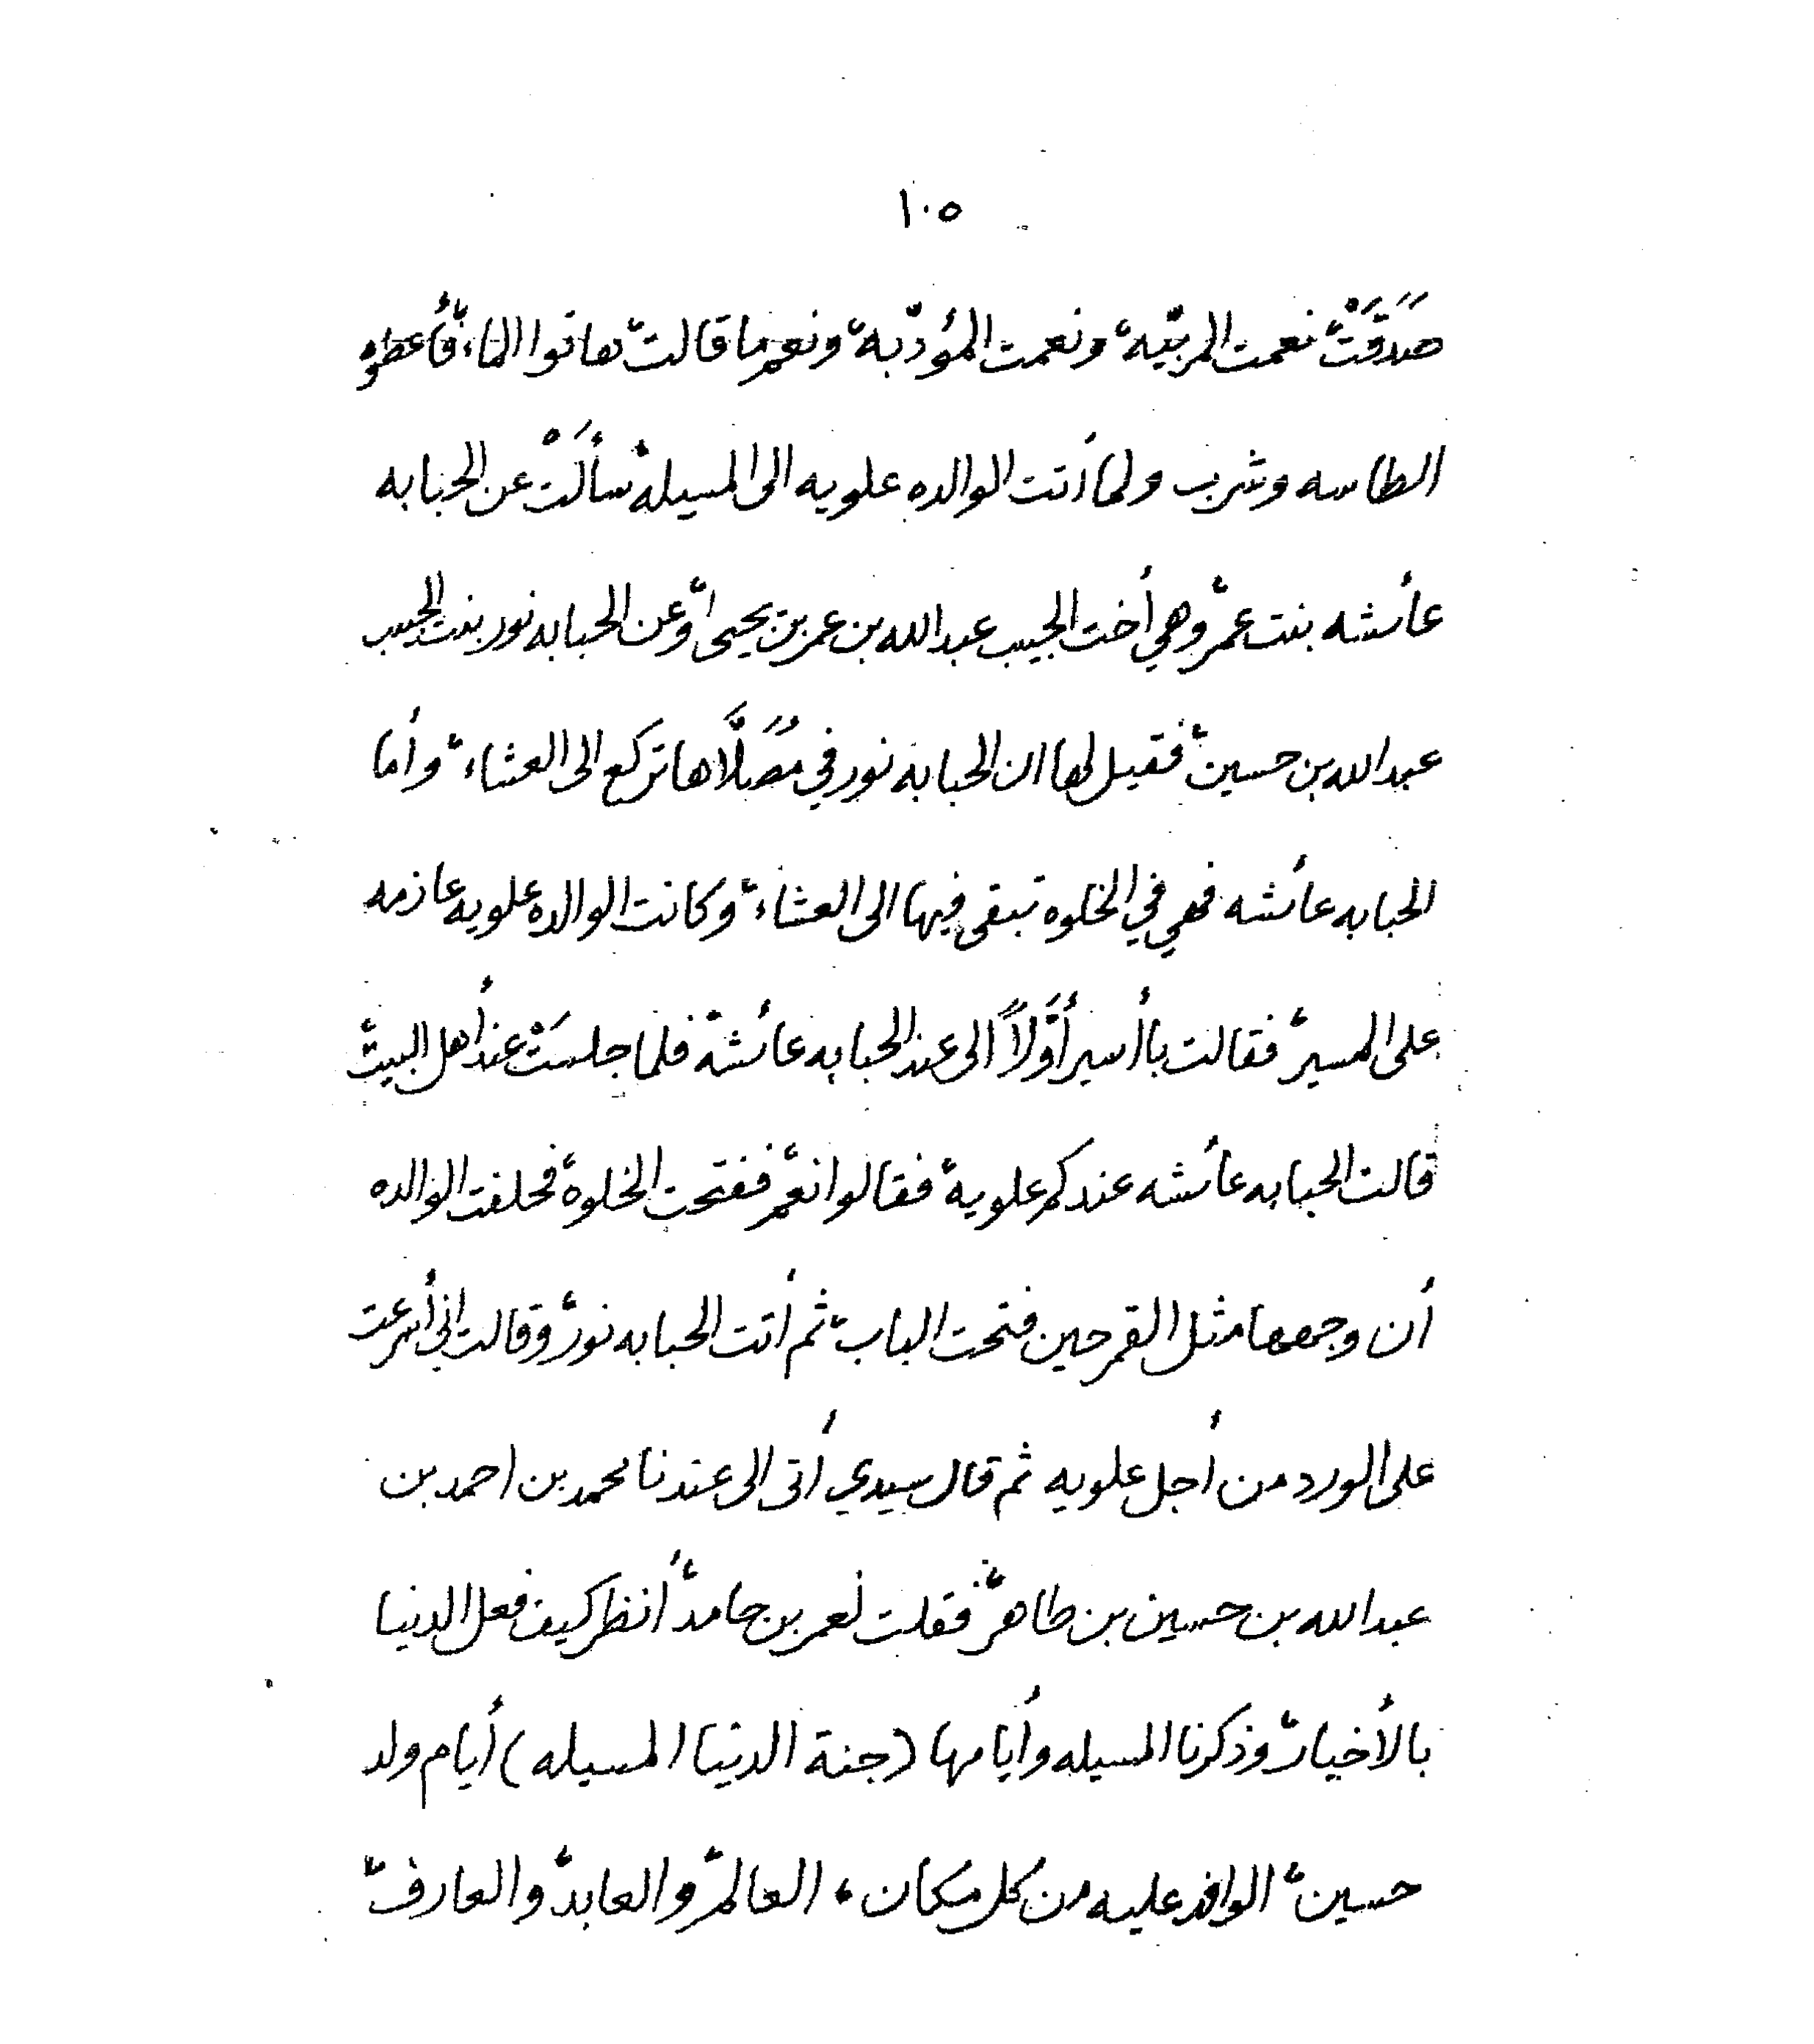 ١٠٥
صَدَقَتْ، نعمت المربّيه، ونعمت المؤدّبة، ونعم ما قالت، هاتوا الماء، فأعطوه
الطاسه وشرب ولما أتت الوالده علويه الى المسيلة، سألَتْ عن الحبابه
عائشه بنت عمر، وهي أخت الحبيب عبدالله بن عمر بن يحيى، وعن الحبابه نور بنت الحبيب
عبدالله بن حسين، فقيل لها ان الحبابه نور في مُصَلَّاها تركع الى العشاء، وأما
الحبابه عائشه فهي في الخلوه تبقى فيها الى العشاء، وكانت الوالده علويه عازمه
على المسير، فقالت بأسير أوَّلاً الى عند الحبابه عائشة، فلما جلسَتْ عند أهل البيت،
قالت الحبابه عائشه عندكم علوية، فقالوا نعم، ففتحت الخلوة، فحلفت الوالده
أن وجهها مثل القمر حين فتحت الباب، ثم أتت الحبابه نور، وقالت إني أسرعت
على الورد من أجل علويه ثم قال سيدي أتى الى عندنا محمد بن احمد بن
عبدالله بن حسين بن طاهر، فقلت لعمر بن حامد، أنظر كيف فعل الدنيا
بالأخيار، وذكرنا المسيله وأيامها (جنة الدنيا المسيله) أيام ولد
حسين، الوافد عليه من كل مكان، العالم، والعابد، والعارف،